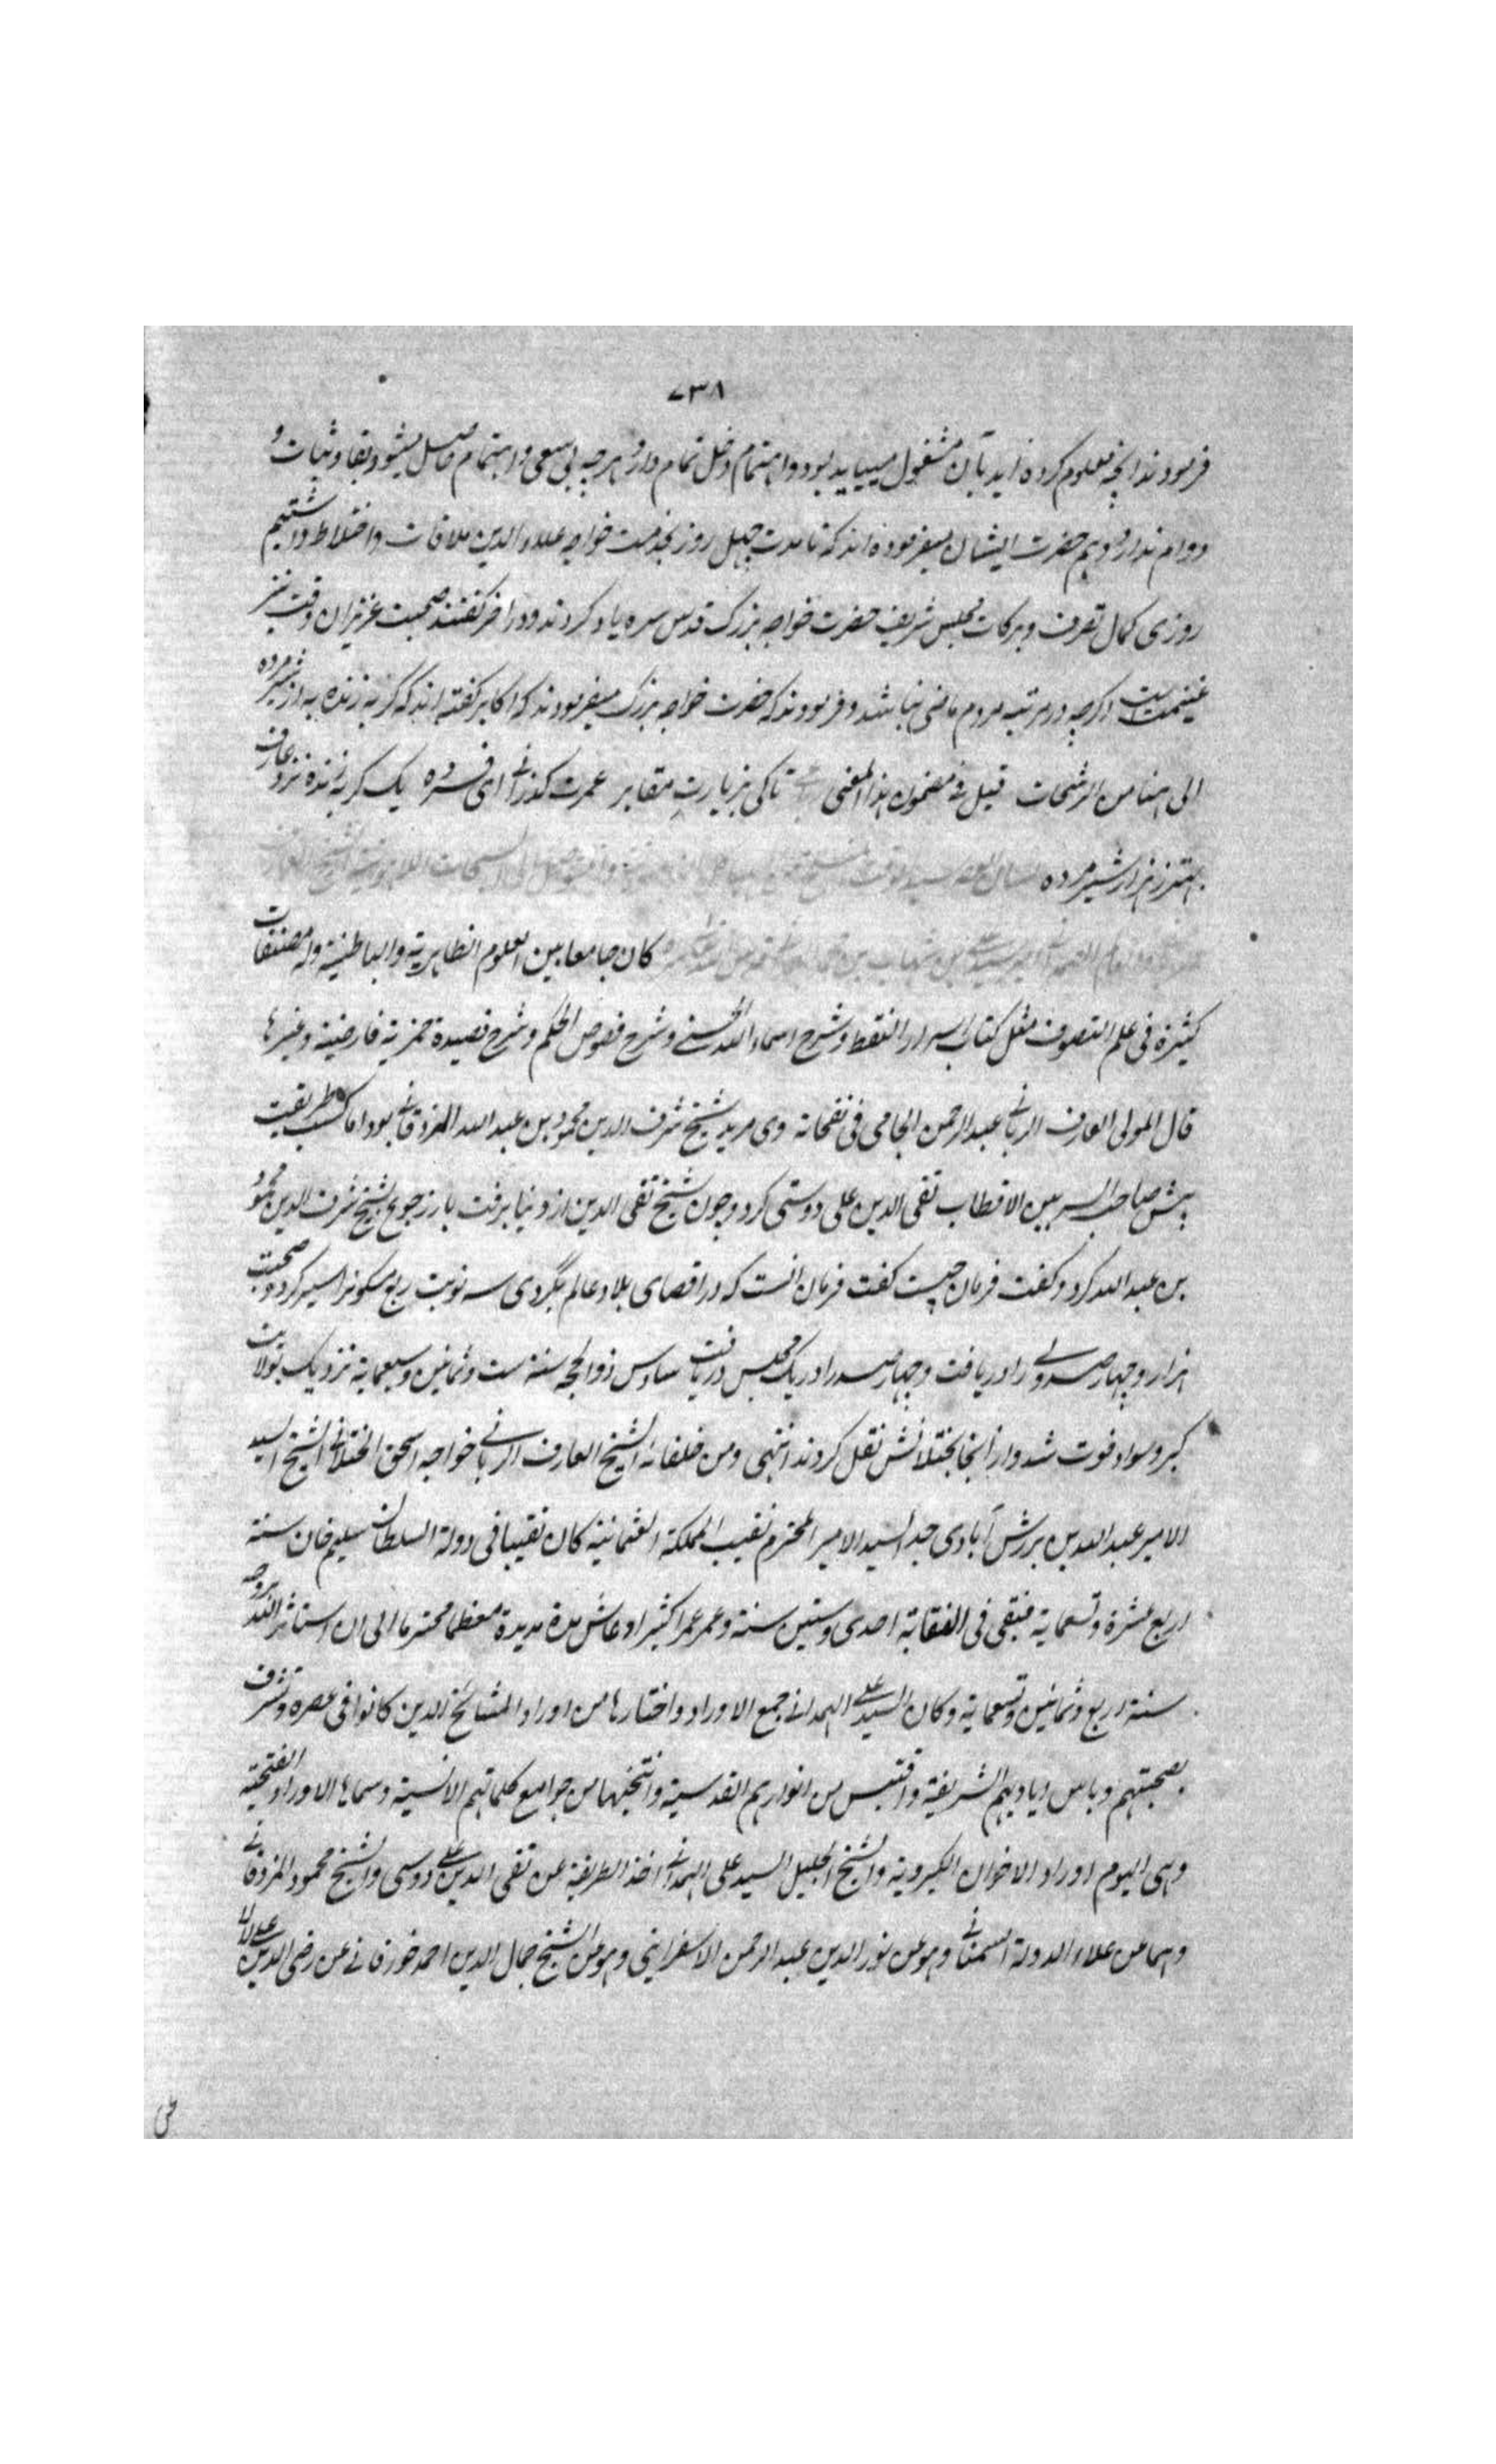 ٧٣٨
فرمودند انچه معلوم کرده اید بآن مشغول میباید بود و اهتمام دخل تمام دارد هر چه بی سعی و اهتمام حاصل میشود بقا و ثبات و
دوام ندارد و هم حضرت ایشان میفرموده اند که تا مدت چهل روز بخدمت خواجه علاء الدین ملاقات و اختلاط داشتیم
روزی کمال تصرف و برکات مجلس شریف حضرت خواجه بزرگ قدس سره یاد کردند و در اخر گفتند صحبت عزیزان وقت نیز
غنیمت است اگرچه در مرتبه مردم ماضی نباشد و فرمودند که حضرت خواجه بزرگ میفرمودند که اکابر گفته اند که گربه زنده به از شیر مرده
الی هنا من الرشحات قیل فی مضمون هذا المعنی تا کی بزیارت مقابر عمرت گذرانی ای فسرده یک گربه زنده نزد عارف
بهتر ز هزار شیر مرده
کان جامعا بین العلوم الظاهریة والباطنیة وله مصنفات
کثیرة فی علم التصوف مثل کتاب اسرار النقط وشرح اسماء الله الحسنی وشرح فصوص الحکم وشرح قصیدة خمریة فارضیة وغیرها
قال المولی العارف الربانی عبد الرحمن الجامی فی نفحاته وی مرید شیخ شرف الدین محمود بن عبد الله المزدقانی بود اما کسب طریقت
پیش صاحب السر بین الاقطاب تقی الدین علی دوستی کرد و چون شیخ تقی الدین از دنیا برفت باز رجوع بشیخ شرف الدین محمود
بن عبد الله کرد و گفت فرمان چیست گفت فرمان انست که در اقصای بلاد عالم بگردی سه نوبت ربع مسکونرا سیر کرد و صحبت
هزار و چهارصد ولی را دریافت و چهارصد را در یک مجلس دریافت سادس ذو الحجه سنة ست وثمانین وسبعمایة نزدیک بولایت
کبر و سواد فوت شد و از انجا بختلانش نقل کردند انتهی ومن خلفائه الشیخ العارف الربانی خواجه اسحق الختلانی الشیخ السید
الامیر عبد الله بن برزش آبادی جد السید الامیر المحترم نقیب المملکة العثمانیة کان نقیبا فی دولة السلطان سلیم خان سنة
اربع عشرة وتسعمایة فبقی فی النقابة احدی وستین سنة وعمر عمرا کثیرا وعاش مدة مدیدة معظما محترما الی ان استاثر الله بروحه
سنة اربع وثمانین وتسعمایة وکان السید علی الهمدانی جمع الاوراد واختارها من اوراد المشائخ الذین کانوا فی عصره وتشرف
بصحبتهم وباس ایادیهم الشریفة واقتبس من انوارهم القدسیة وانتخبها من جوامع کلماتهم الانسیة وسماها الاوراد الفتحیة
وهی الیوم اوراد الاخوان الکبرویة والشیخ الجلیل السید علی الهمدانی اخذ الطریقة عن تقی الدین علی دوسی والشیخ محمود المزدقانی
وهما عن علاء الدولة السمنانی وهو عن نور الدین عبد الرحمن الاسفراینی وهو عن الشیخ جمال الدین احمد خورقانی عن رضی الدین علی لالا